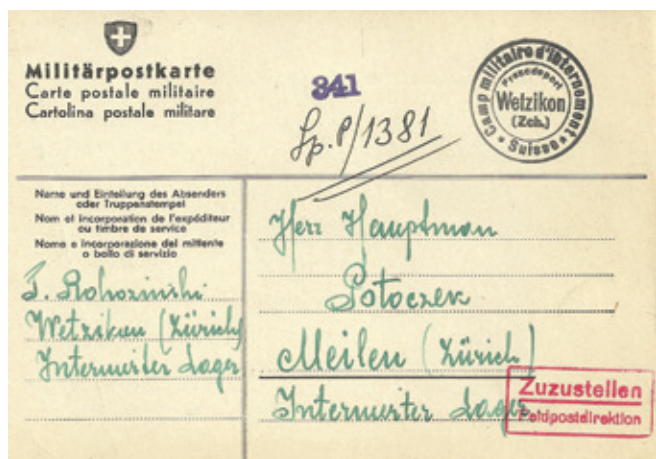 Militärpostkarte
Carte postale militaire
Cartolina postale militare
341
Sp. P/1381
Camp militaire d'internement
Pressedepot
Wetzikon
(Zch.)
* Suisse *
Name und Einteilung des Absenders
oder Truppenstempel
Nom et incorporation de l'expéditeur
ou timbre de service
Nome e incorporazione del mittente
o bollo di servizio
Herr Hauptman
Potoczek
Meilen (Zürich)
Internierter Lager
T. Rohozinski
Wetzikon (Zürich)
Internierter Lager
Zuzustellen
Feldpostdirektion